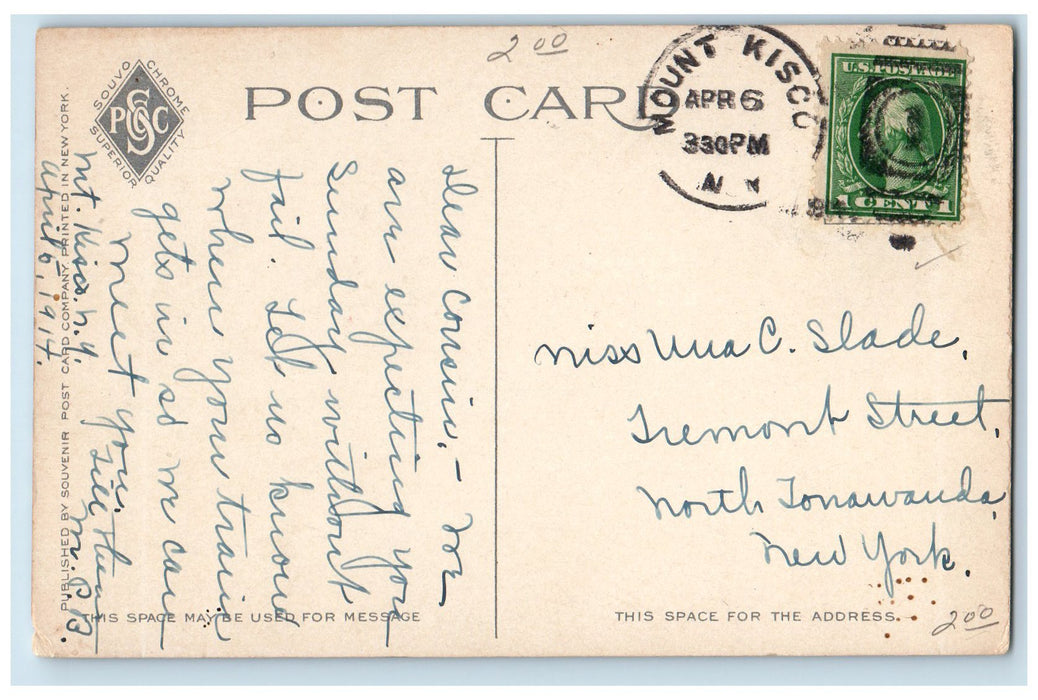 2 00
POST CARD
SOUVO CHROME
SUPERIOR QUALITY
PSCC
MOUNT KISCO
APR 6
330PM
N.Y.
U.S. POSTAGE
1 CENT 1
Mt. Kisco. N.Y.
April 5, 1917.
Dear Cousin,- We
are expecting you
Sunday without
fail. Let us know
when your train
gets in so we can
meet you.
Till then
M. P. B.
Miss Una C. Slade,
Tremont Street,
North Tonawanda,
New York.
PUBLISHED BY SOUVENIR POST CARD COMPANY. PRINTED IN NEW YORK.
THIS SPACE MAY BE USED FOR MESSAGE
THIS SPACE FOR THE ADDRESS.
2 00